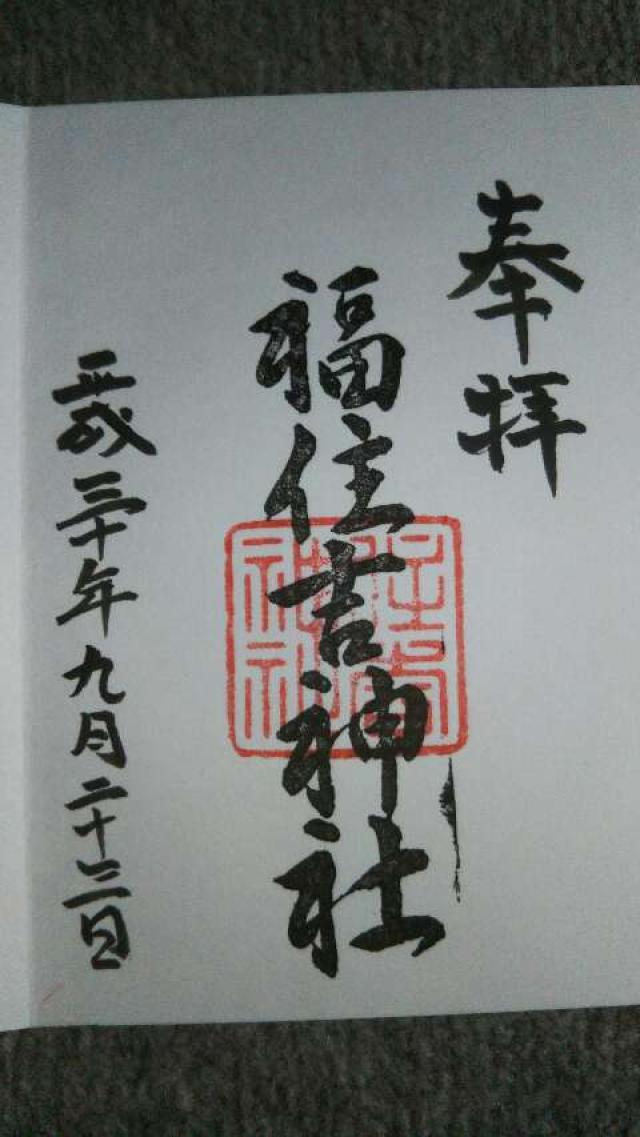 奉拝
福住吉神社
平成三十年九月二十三日